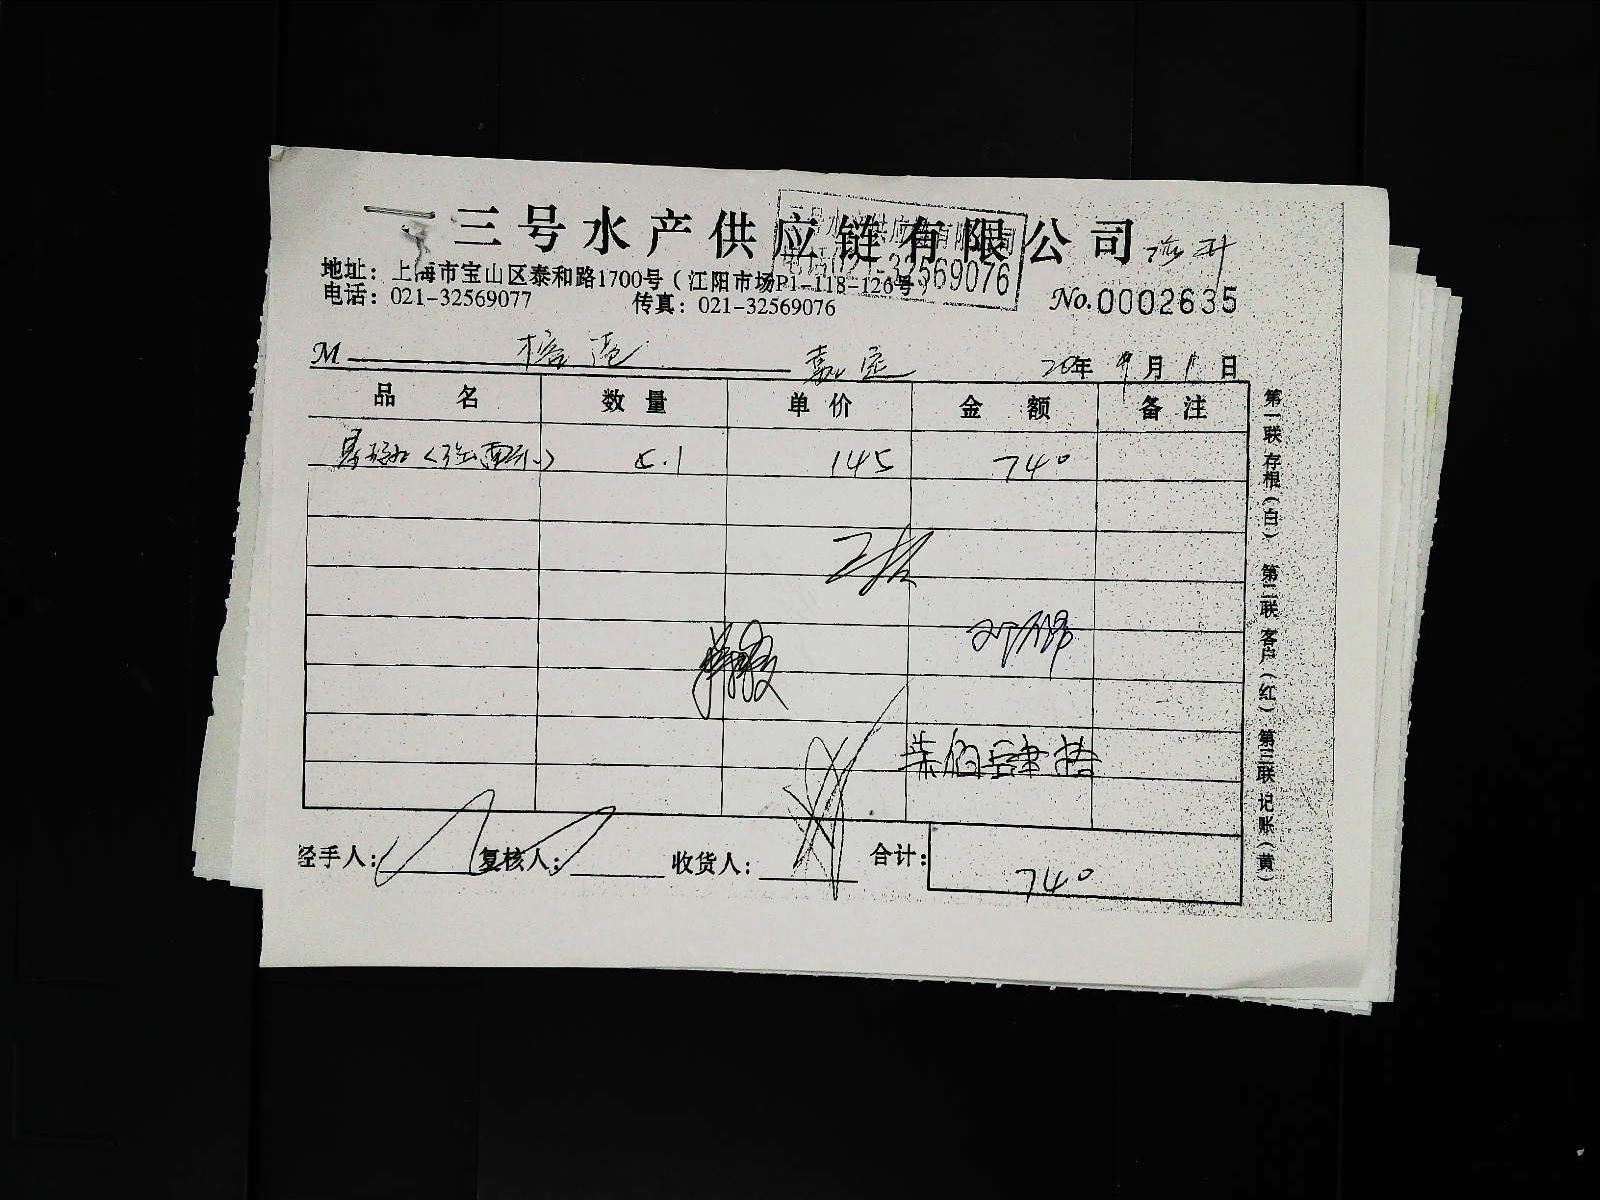 三号水产供应链有限公司
地址：上海市宝山区泰和路1700号（江阳市场P1-118-126号）
电话：021-32569077 传真：021-32569076
32569076
No.0002635
M 嘉定 20年 9月 1日
品名 数量 单价 金额 备注
5.1 145 740
柒佰肆拾
经手人： 复核人： 收货人： 合计：
740
第一联 存根（白） 第二联 客户（红） 第三联 记账（黄）